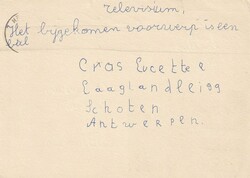 televisium;
Het bijgekomen voorwerp is een
bal
Cros Lucette
Laaglandlei 99
Schoten
Antwerpen.